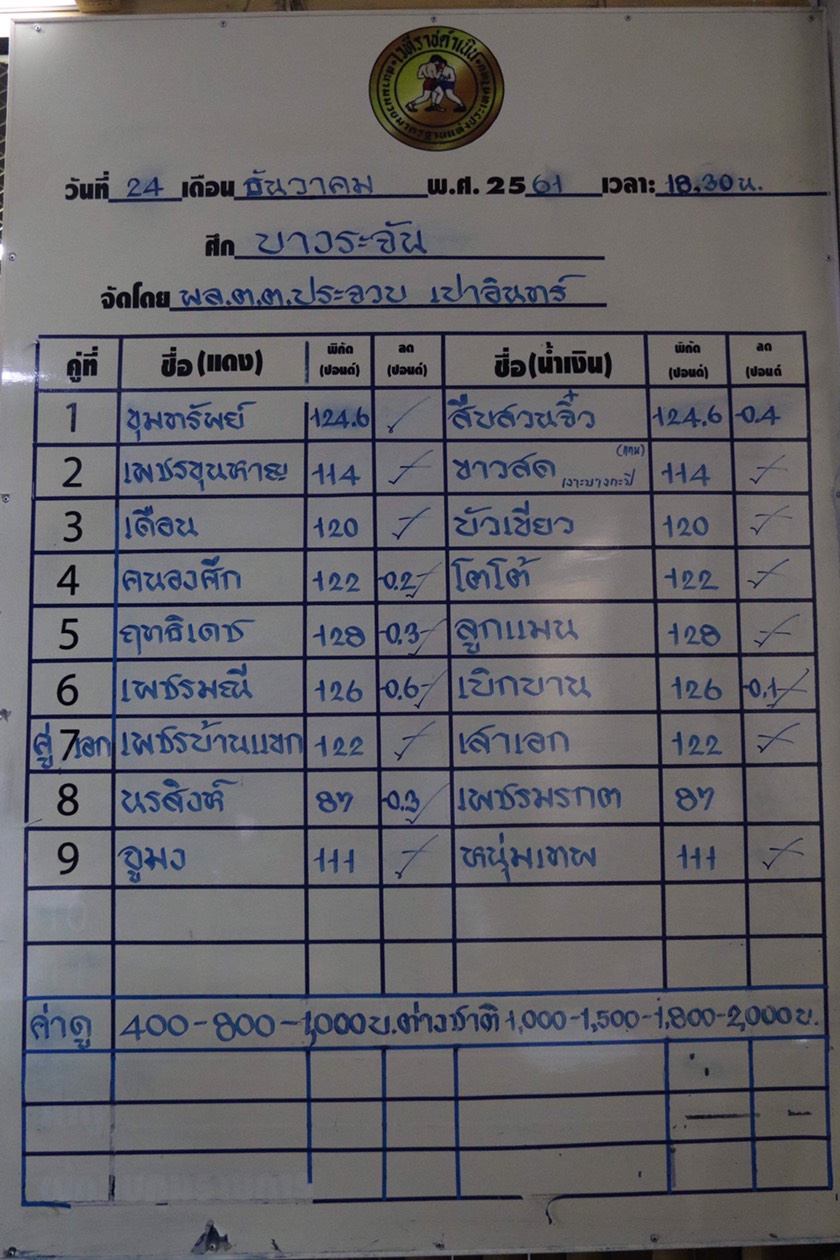 เวทีราชดำเนิน
สนามมวยมาตรฐานแห่งประเทศไทย
วันที่ 24 เดือน ธันวาคม พ.ศ. 2561 เวลา: 18.30 น.
ศึก บางระจัน
จัดโดย พล.ต.ต.ประจวบ เปาอินทร์
คู่ที่ ชื่อ(แดง) พิกัด (ปอนด์) ลด (ปอนด์) ชื่อ(น้ำเงิน) พิกัด (ปอนด์) ลด (ปอนด์
1 ขุมทรัพย์ 124.6 ✓ สืบสวนจิ๋ว 124.6 -0.4
2 เพชรขุนหาญ 114 ✓ ขาวสด (แทน) เงาะบางกะปิ 114 ✓
3 เดือน 120 ✓ บัวเขียว 120 ✓
4 คนองศึก 122 -0.2 ✓ โตโต้ 122 ✓
5 ฤทธิเดช 128 -0.3 ✓ ลูกแมน 128 ✓
6 เพชรมณี 126 -0.6 ✓ เบิกบาน 126 -0.1 ✓
คู่ 7 เอก เพชรบ้านแขก 122 ✓ เสาเอก 122 ✓
8 นรสิงห์ 87 -0.3 ✓ เพชรมรกต 87
9 อูมง 111 ✓ หนุ่มเทพ 111 ✓
ค่าดู 400-800-1,000 บ. ต่างชาติ 1,000-1,500-1,800-2,000 บ.